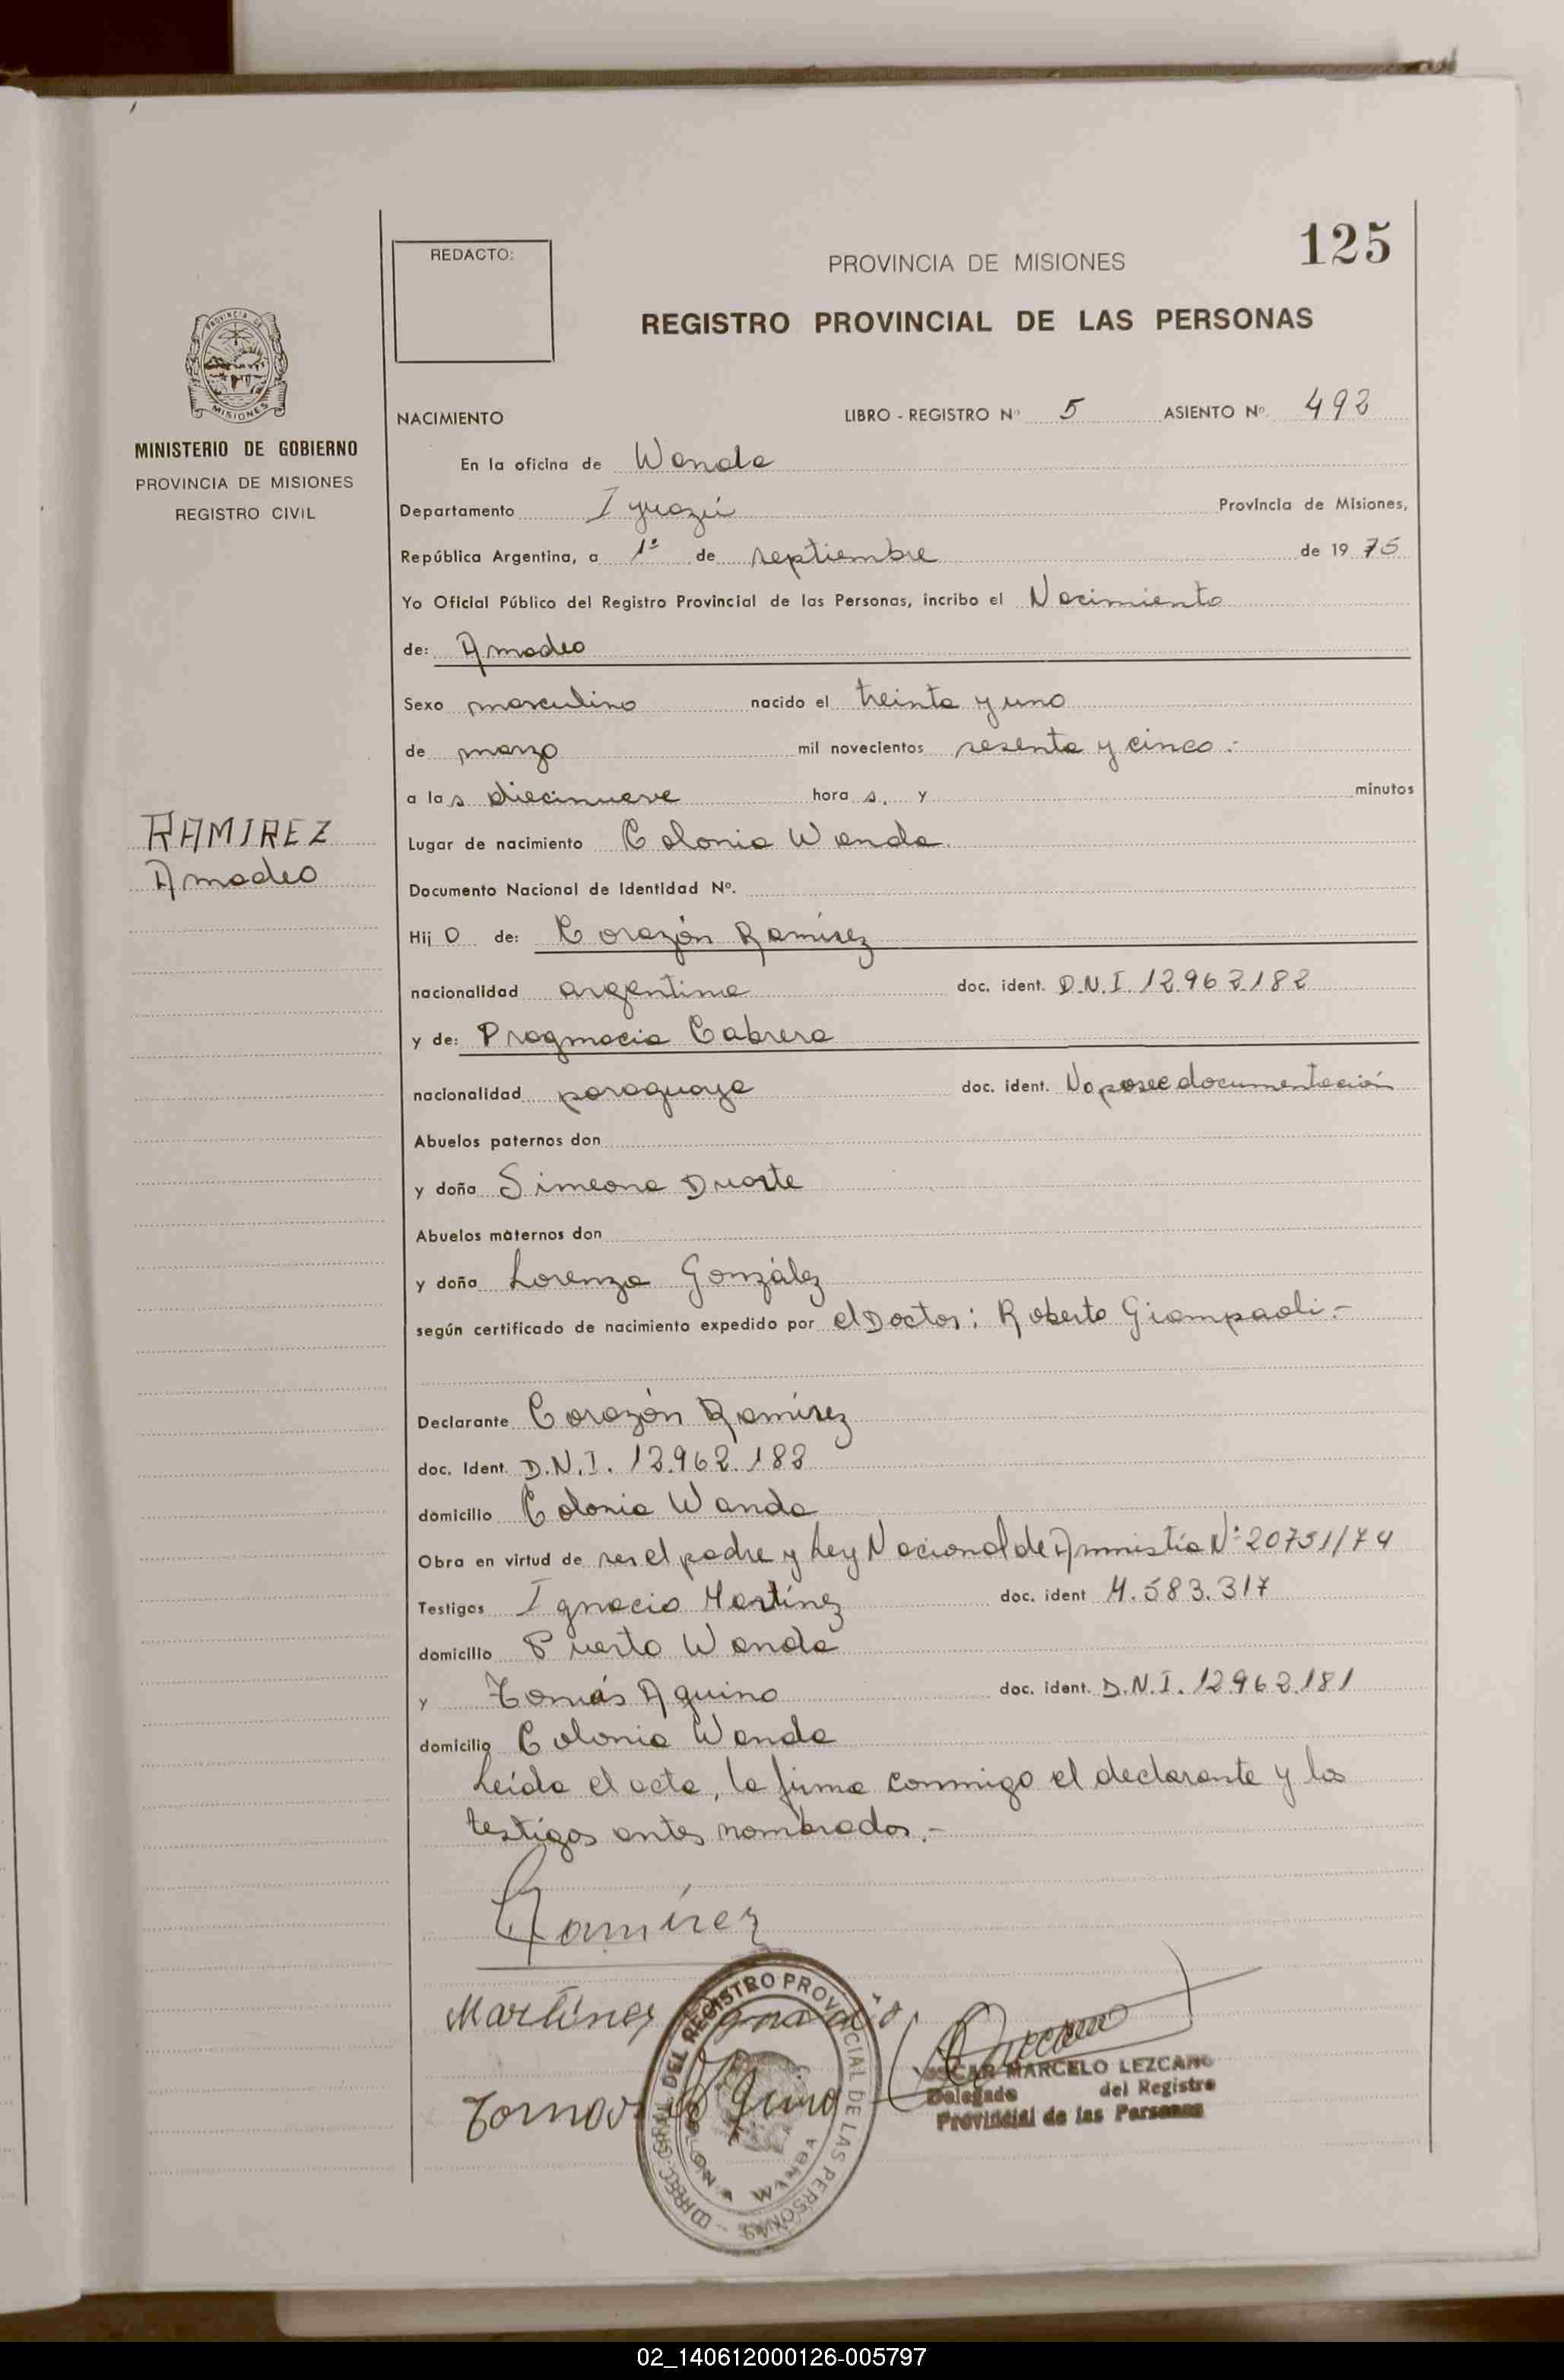 125
REDACTO:
PROVINCIA DE MISIONES
REGISTRO PROVINCIAL DE LAS PERSONAS
PROVINCIA DE
MISIONES
MINISTERIO DE GOBIERNO
PROVINCIA DE MISIONES
REGISTRO CIVIL
RAMIREZ
Amadeo
NACIMIENTO LIBRO - REGISTRO Nº 5 ASIENTO Nº 492
En la oficina de Wanda
Departamento Iguazú Provincia de Misiones,
República Argentina, a 1º de septiembre de 19 75
Yo Oficial Público del Registro Provincial de las Personas, incribo el Nacimiento
de: Amadeo
Sexo masculino nacido el treinta y uno
de marzo mil novecientos sesenta y cinco.-
a las diecinueve hora s, y minutos
Lugar de nacimiento Colonia Wanda.
Documento Nacional de Identidad Nº.
Hij o de: Corazón Ramírez
nacionalidad argentina doc. ident. D.N.I. 12.962.182
y de: Pragmacia Cabrera
nacionalidad paraguaya doc. ident. No posee documentación
Abuelos paternos don
y doña Simeona Duarte
Abuelos maternos don
y doña Lorenza González
según certificado de nacimiento expedido por el Doctor: Roberto Giampaoli.-
Declarante Corazón Ramírez
doc. Ident. D.N.I. 12.962.182
domicilio Colonia Wanda
Obra en virtud de ser el padre y Ley Nacional de Amnistía Nº 20751/74
Testigos Ignacio Martínez doc. ident M.583.317
domicilio Puerto Wanda
y Tomás Aquino doc. ident. D.N.I. 12.962.181
domicilio Colonia Wanda
Leída el acta, la firma conmigo el declarante y los
testigos antes nombrados.-
Ramírez
Martínez Ignacio
Tomas Aquino
DIRECC. GRAL. DEL REGISTRO PROVINCIAL DE LAS PERSONAS
COLONIA WANDA
OSCAR MARCELO LEZCANO
Delegado del Registro
Provincial de las Personas
02_140612000126-005797